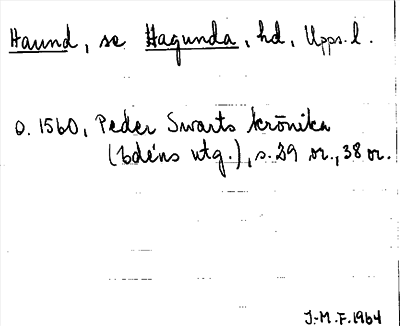 Haund, se Hagunda, hd, Upps. l.
o. 1560, Peder Swarts krönika
(Edéns utg.), s. 29 or., 38 or.
J.M.F. 1964